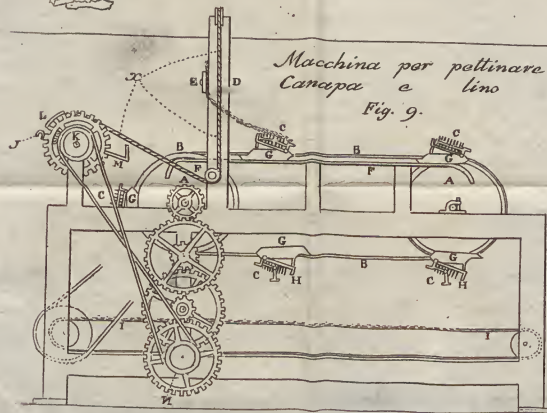 Macchina per pettinare
Canapa e lino
Fig. 9.
x
E
D
C
C
L
J
K
B
G
B
G
M
F
F
A
A
C
G
G
G
C
H
B
C
H
I
I
N